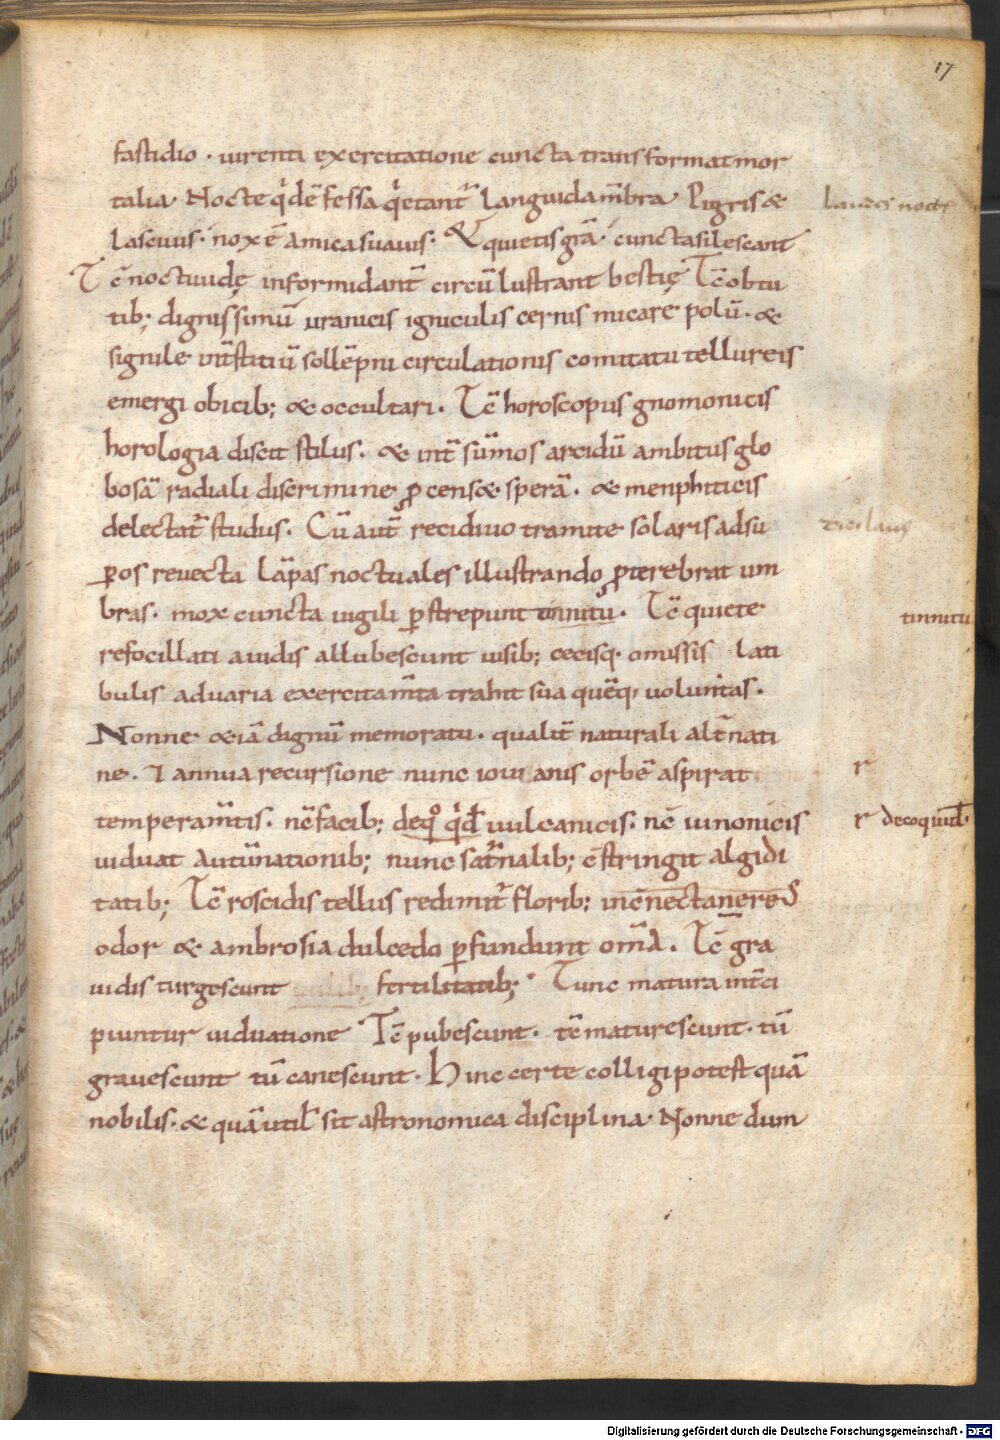 17
fastidio · uirenti exercitatione cuncta transformat mor
talia· Nocte qͥdē fessa qͥetant᷑ languida m̄bra· Pigris &
lasciuis · nox ē amica suauis· & quietis gr̄a· cuncta silescant
Tc̄ noctiuidę informidant᷑ circū lustrant bestię· Tc̄ obtu
tib; dignissimū uranicis igniculis cernis micare polū· &
signile int̄stitiū sollēpni circulationis comitatu tellureis
emergi obicib; & occultari· Tc̄ horoscopus gnomonicis
horologia discit stilus· & int̄ sūmos arcidū ambitus glo
bosā radiali discrimine ꝓcens& sperā· & menphiticis
delectat᷑ studiis· Cū aut̄ recidiuo tramite solaris ad su
ꝑos reuecta lāpas noctuales illustrando ꝓterebrat um
bras· mox cuncta uigili ꝑstrepunt tinnitu· Tc̄ quiete
refocillati auidis allubescunt uisib; cecisq· omissis lati
bulis aduaria exercitam̄ta trahit sua quēq, voluntas·
Nonne &iā dignū memoratu· qualit̄ naturali alt̄nati
ne· 7 annua recursione nunc iouianis orbē aspirat
temperam̄tis· nc̄ facib; deqͦ qͥd̄ uulcanicis· nc̄ uinonicis
uiduat autūnationib; nunc sat᷑nalib; c̄stringit algidi
tatib; Tc̄ roscidis tellus redimit᷑ florib; inc̄ nectanereꝰ
odor & ambrosia dulcedo ꝑfundunt om̄ia· Tc̄ gra
uidis turgescunt fertilitatib; · Tunc matura int̄ci
piuntur uiduatione· Tc̄ pubescunt· tc̄ maturescunt· tū
grauescunt tū canescunt· Hinc certe colligi potest quā
nobilis· & quā util̄ sit astronomica disciplina· Nonne dum
tinnitu
r
r decoq uul̄
Digitalisierung gefördert durch die Deutsche Forschungsgemeinschaft - DFG